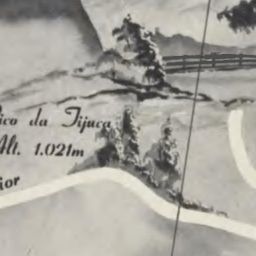 Pico da Tijuca
Alt. 1.021m
ior